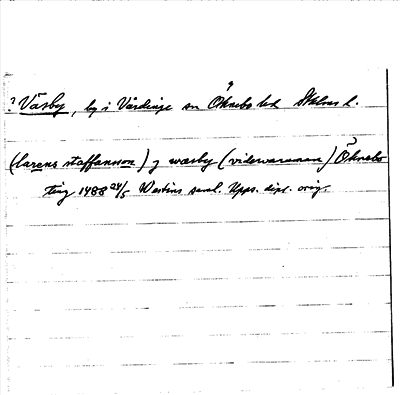 ? Väsby, by i Vårdinge sn Öknebo hd Sthlms l.
(larens staffansson) j wæsby (videwaranan) Öknebo
ting 1488 24/5 Westins saml. Upps. dipl. orig.